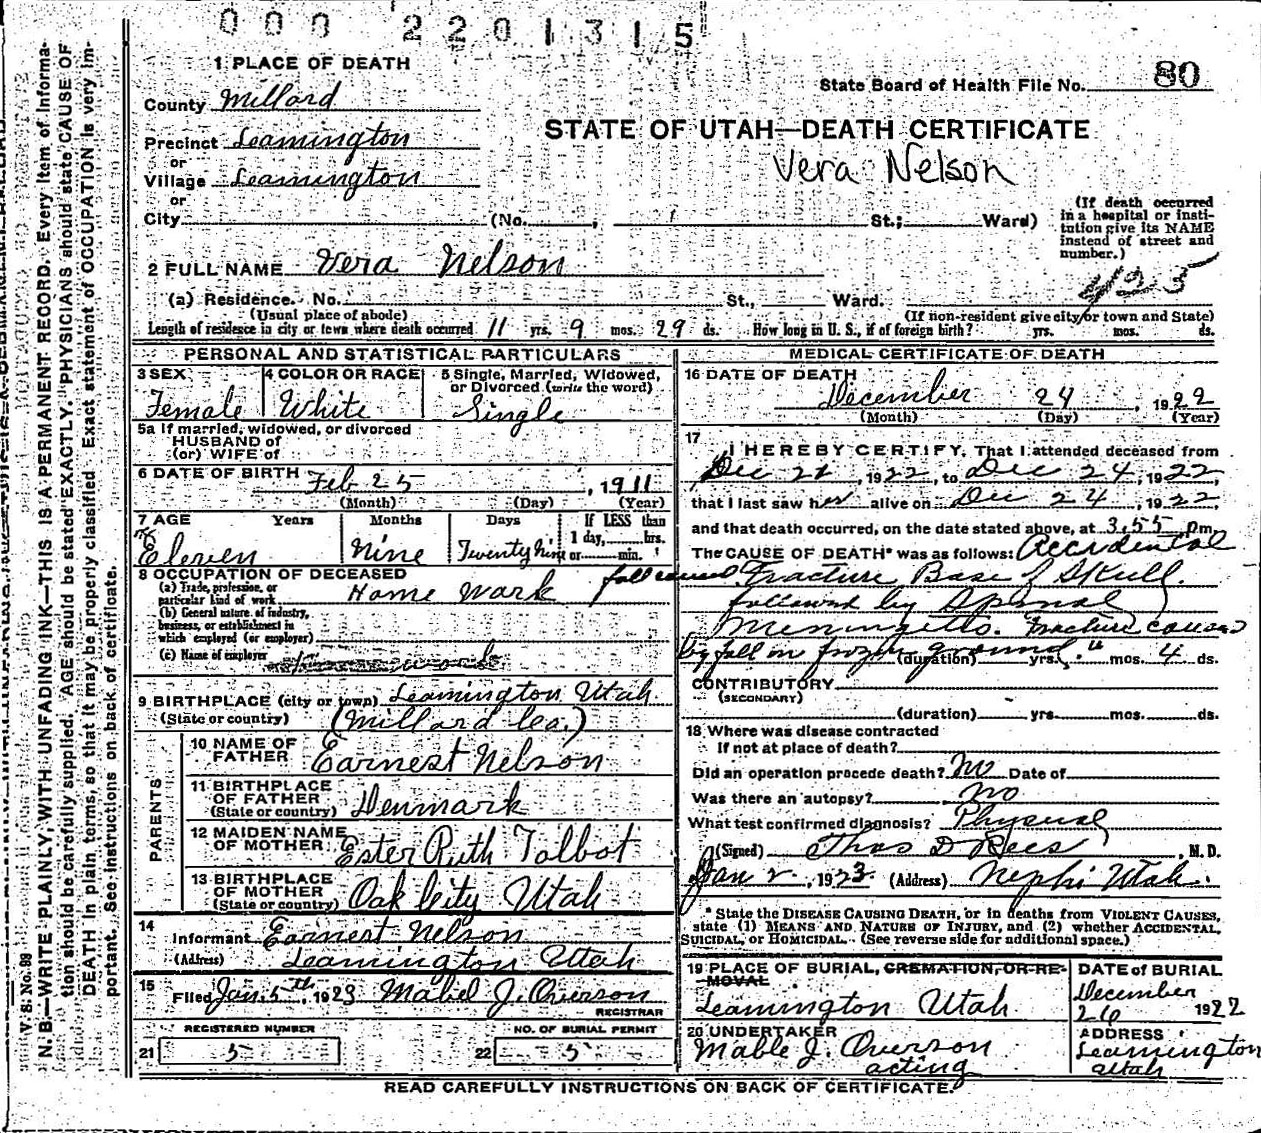 000 2201315
1 PLACE OF DEATH
State Board of Health File No. 80
County Millard
STATE OF UTAH—DEATH CERTIFICATE
Precinct Leamington
Vera Nelson
or
Village Leamington
or
City (No. , St.; Ward)
(If death occurred in a hospital or insti-
tution give its NAME instead of street and
number.)
2 FULL NAME Vera Nelson
(a) Residence. No. St., Ward.
(Usual place of abode) (If non-resident give city or town and State)
Length of residence in city or town where death occurred 11 yrs. 9 mos. 29 ds. How long in U. S., if of foreign birth? yrs. mos. ds.
PERSONAL AND STATISTICAL PARTICULARS
3 SEX 4 COLOR OR RACE 5 Single, Married, Widowed,
or Divorced (write the word)
Female White Single
5a If married, widowed, or divorced
HUSBAND of
(or) WIFE of
6 DATE OF BIRTH Feb 25, 1911
(Month) (Day) (Year)
7 AGE Years Months Days If LESS than
1 day, hrs.
or min.
Eleven Nine Twenty nine
8 OCCUPATION OF DECEASED
(a) Trade, profession, or
particular kind of work Home work
(b) General nature of industry,
business, or establishment in
which employed (or employer)
(c) Name of employer
9 BIRTHPLACE (city or town) Leamington Utah
(State or country) (Millard Co.)
PARENTS
10 NAME OF
FATHER Earnest Nelson
11 BIRTHPLACE
OF FATHER
(State or country) Denmark
12 MAIDEN NAME
OF MOTHER Ester Ruth Talbot
13 BIRTHPLACE
OF MOTHER
(State or country) Oak City Utah
14
Informant Earnest Nelson
(Address) Leamington Utah
15
Filed Jan. 5th, 1923 Mabel J. Overson
REGISTRAR
REGISTERED NUMBER NO. OF BURIAL PERMIT
21 5 22 5
MEDICAL CERTIFICATE OF DEATH
16 DATE OF DEATH
December 24, 1922
(Month) (Day) (Year)
17
I HEREBY CERTIFY, That I attended deceased from
Dec 1922, to Dec 24, 1922,
that I last saw her alive on Dec 24, 1922,
and that death occurred, on the date stated above, at 3.55 Pm.
The CAUSE OF DEATH* was as follows: Accidental
fall caused Fracture Base of Skull.
followed by Spinal
Meningitis. Fracture caused
by fall on frozen ground (duration) yrs. mos. 4 ds.
CONTRIBUTORY
(SECONDARY)
(duration) yrs. mos. ds.
18 Where was disease contracted
If not at place of death?
Did an operation precede death? No Date of
Was there an autopsy? No
What test confirmed diagnosis? Physical
(Signed) Thos D Rees, M.D.
Jan 2, 1923. (Address) Nephi Utah.
* State the DISEASE CAUSING DEATH, or in deaths from VIOLENT CAUSES,
state (1) MEANS AND NATURE OF INJURY, and (2) whether ACCIDENTAL,
SUICIDAL, or HOMICIDAL. (See reverse side for additional space.)
19 PLACE OF BURIAL, CREMATION, OR RE-
MOVAL
Leamington Utah
DATE of BURIAL
December
26 1922
20 UNDERTAKER
Mable J. Overson
acting
ADDRESS
Leamington
Utah
READ CAREFULLY INSTRUCTIONS ON BACK OF CERTIFICATE.
V. S. No. 98
N. B.—WRITE PLAINLY, WITH UNFADING INK—THIS IS A PERMANENT RECORD. Every item of informa-
tion should be carefully supplied. AGE should be stated EXACTLY. PHYSICIANS should state CAUSE OF
DEATH in plain terms, so that it may be properly classified. Exact statement of OCCUPATION is very im-
portant. See instructions on back of certificate.